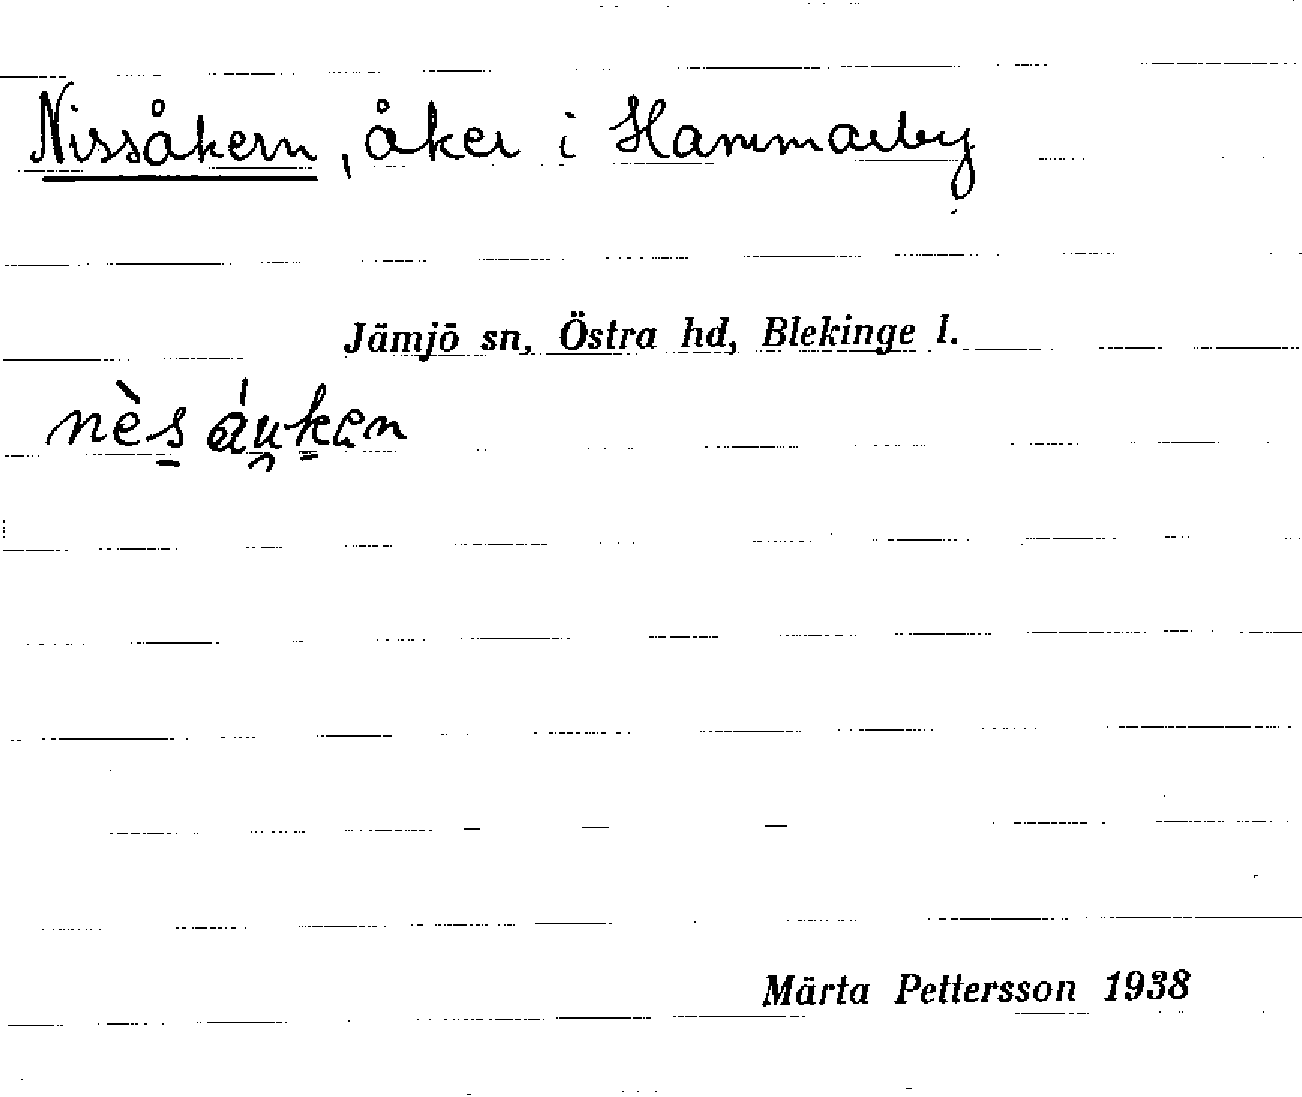 Nissåkern, åker i Hammarby
Jämjö sn, Östra hd, Blekinge l.
nès áuken
Märta Pettersson 1938